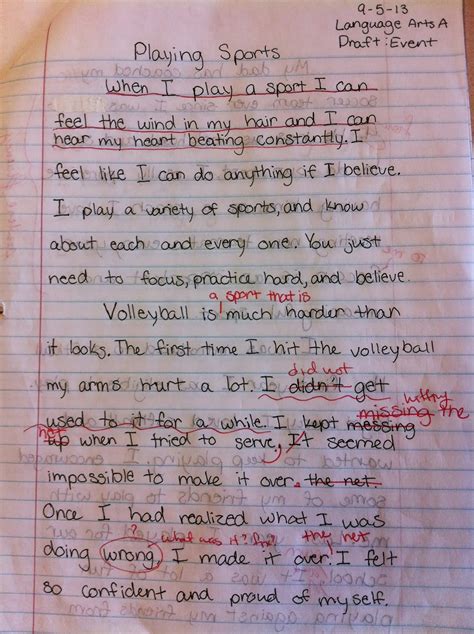 9-5-13
Language Arts A
Draft: Event
Playing Sports
When I play a sport I can
feel the wind in my hair and I can
hear my heart beating constantly. I
feel like I can do anything if I believe.
I play a variety of sports, and know
about each and every one. You just
need to focus, practice hard, and believe.
a sport that is
Volleyball is much harder than
it looks. The first time I hit the volleyball
did not
my arms hurt a lot. I didn't get
hitting
used to it for a while. I kept messing missing the
net
up when I tried to serve, It seemed
impossible to make it over. the net.
Once I had realized what I was
? what was it? the net
doing wrong I made it over. I felt
so confident and proud of myself.